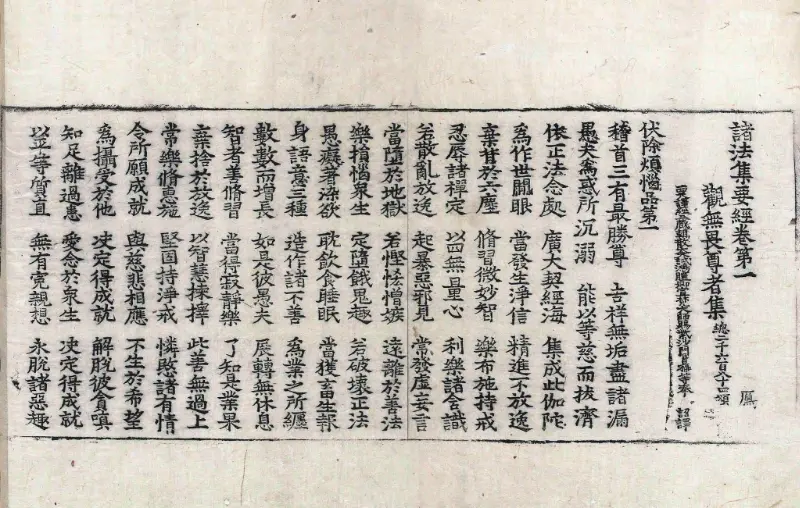 諸法集要經卷第一
觀無畏尊者集 總二千六百八十四頌 鳳
詔譯
伏除煩惱品第一
稽首三有最勝尊 吉祥無垢盡諸漏
愚夫為惑所沉溺 能以等慈而拔濟
依正法念處 廣大契經海 集成此伽陀
為作世間眼 當發生淨信 精進不放逸
棄甘於六塵 脩習微妙智 樂布施持戒
忍辱諸禪定 以四無量心 利樂諸含識
若散亂放逸 起暴惡邪見 常發虛妄言
當墮於地獄 若慳悋憎嫉 遠離於善法
樂損惱衆生 定墮餓鬼趣 若破壞正法
愚癡著染欲 耽飲食睡眠 當獲畜生報
身語意三種 造作諸不善 為業之所纏
數數而增長 如是彼愚夫 展轉無休息
智者善脩習 當得寂靜樂 了知是業果
棄捨於放逸 以智慧揀擇 此善無過上
常樂脩惠施 堅固持淨戒 憐敗諸有情
令所願成就 與慈悲相應 不生於希望
為攝受於他 决定得成就 解脫彼貪嗔
知足離過患 愛念於衆生 决定得成就
以平等質直 無有寃親想 永脫諸惡趣